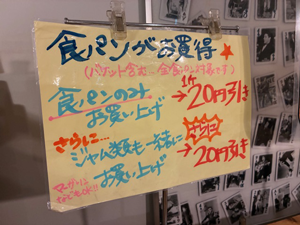 食パンがお買得
(バゲット含む…全食パン対象です)
食パンのみ
お買い上げ
1ケ
→20円引き
さらに…
ジャム類も一緒に
お買い上げ
→20円引き
マーガリン